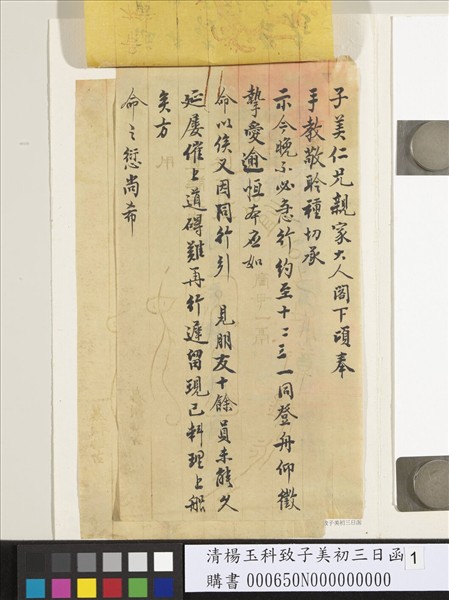 子美仁兄親家大人閣下頃奉
手教敬聆種切承
示今晚不必急行約至十二三一同登舟仰徵
摯愛逾恒本應如
命以俟又因同行引 見朋友十餘員未能久
延屢催上道礙難再行遲留現已料理上船
矣方
命之愆尚希
致子美初三日函
清楊玉科致子美初三日函 1
購書 000650N000000000